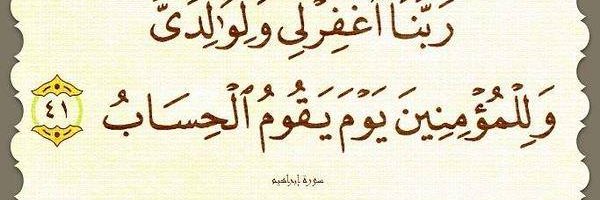 رَبَّنَا اغْفِرْ لِي وَلِوَالِدَيَّ
وَلِلْمُؤْمِنِينَ يَوْمَ يَقُومُ الْحِسَابُ ٤١
سورة إبراهيم